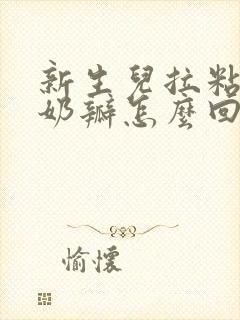 新生兒拉粘
奶瓣怎麼回
愉懷